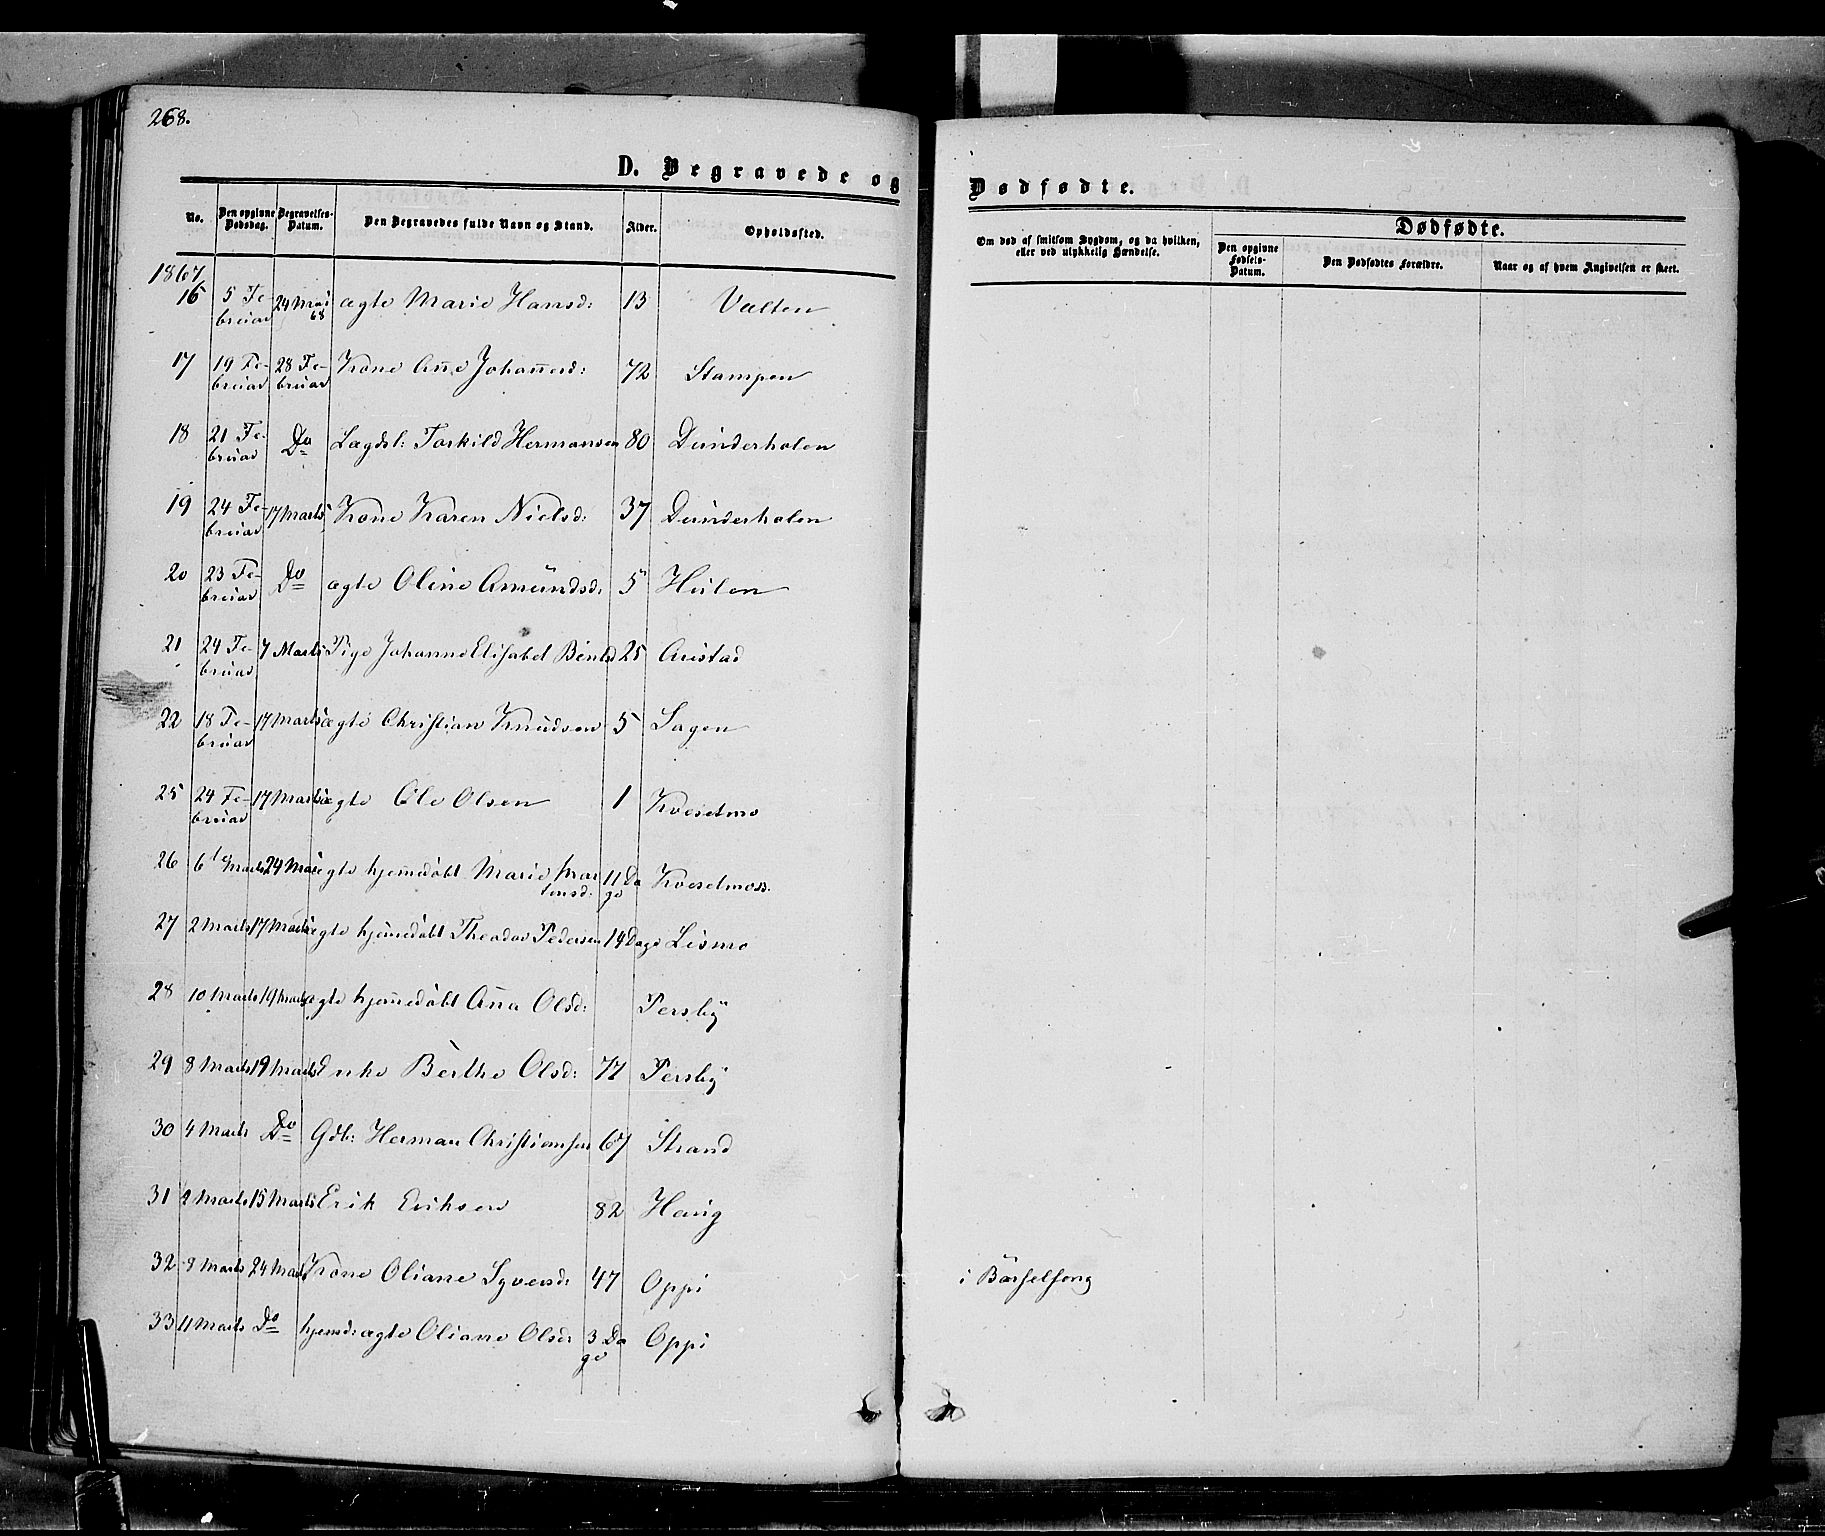 268.
D. Begravede og
No. Den opgivne Dødsdag. Begravelses-Datum. Den Begravedes fulde Navn og Stand. Alder. Opholdssted.
1867
16 5 Februar 24 Mai 68 ægte Marie Hansd: 13 Valten
17 19 Februar 28 Februar Kone Ane Johannesd: 72 Stampen
18 21 Februar Do Lægdsl: Torkild Hermansen 80 Dunderholen
19 24 Februar 17 Marts Kone Karen Nielsd: 37 Dunderholen
20 23 Februar Do ægte Oline Amundsd: 5 Hulen
21 24 Februar 7 Marts Pige Johanne Elisabet Bentsd 25 Austad
22 18 Februar 17 Marts ægte Christian Knudsen 5 Sagen
25 24 Februar 17 Marts ægte Ole Olsen 1 Kvesetmo
26 6te Marts 24 Mai ægte hjemmedøbt Marie Martensd: 11 Dage Kvesetmoss.
27 2 Marts 17 Marts ægte hjemmedøbt Theodor Pedersen 14 Dage Lismo
28 10 Marts 19 Marts ægte hjemmedøbt Anna Olsd: Persby
29 8 Marts 19 Marts Enke Berthe Olsd: 77 Persby
30 4 Marts Do Gdb: Herman Christiansen 67 Strand
31 2 Marts 15 Marts Erik Eriksen 82 Haug
32 9 Marts 24 Marts Kone Oliane Syversd: 47 Oppi
33 11 Marts Do hjemd: ægte Oliane Olsd: 3 Dage Oppi
Dødfødte.
Om død af smitsom Sygdom, og da hvilken, eller ved ulykkelig Hændelse.
Dødfødte.
Den opgivne Fødsels-Datum. Den Dødfødtes Forældre. Naar og af hvem Angivelsen er skeet.
i Barselseng